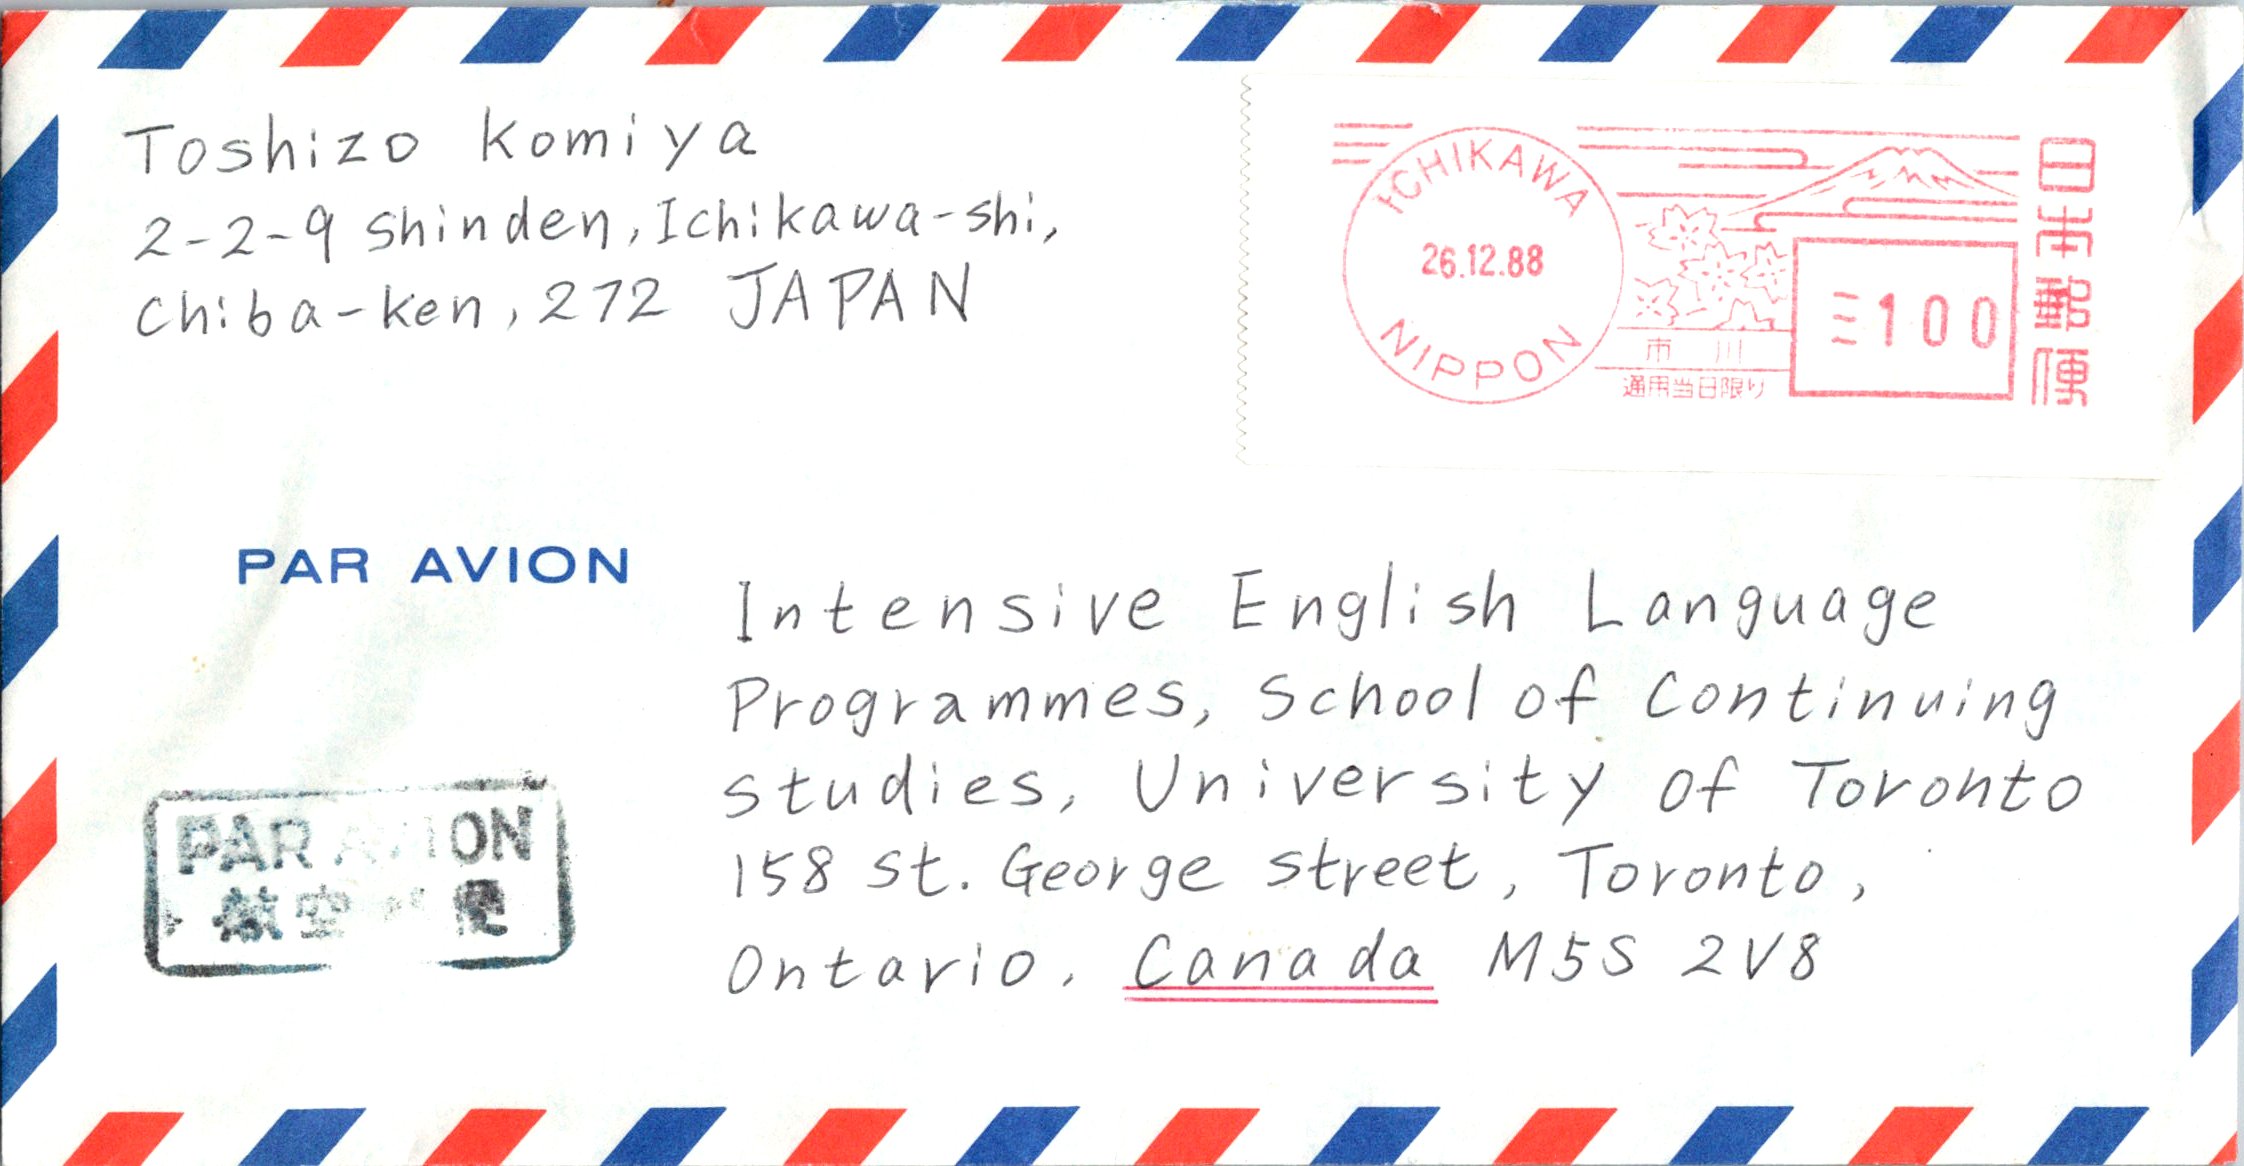 Toshizo Komiya
2-2-9 Shinden, Ichikawa-shi,
Chiba-ken, 272 JAPAN
ICHIKAWA
26.12.88
NIPPON
市川
通用当日限り
100
日本郵便
PAR AVION
Intensive English Language
Programmes, School of Continuing
Studies, University of Toronto
158 St. George Street, Toronto,
Ontario, Canada M5S 2V8
PAR AVION
航空 便